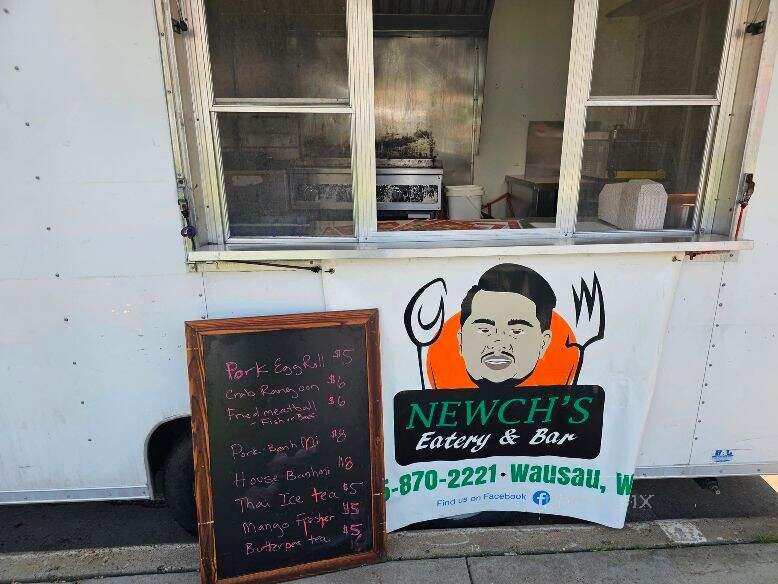 Pork Egg Roll $5
Crab Rangoon $6
Fried meatball $6
Pork-Banh Mi $8
House Banhmi $8
Thai Ice tea $5
Mango $5
Butterpea tea $5
NEWCH'S
Eatery & Bar
5-870-2221 · Wausau, W
Find us on Facebook f